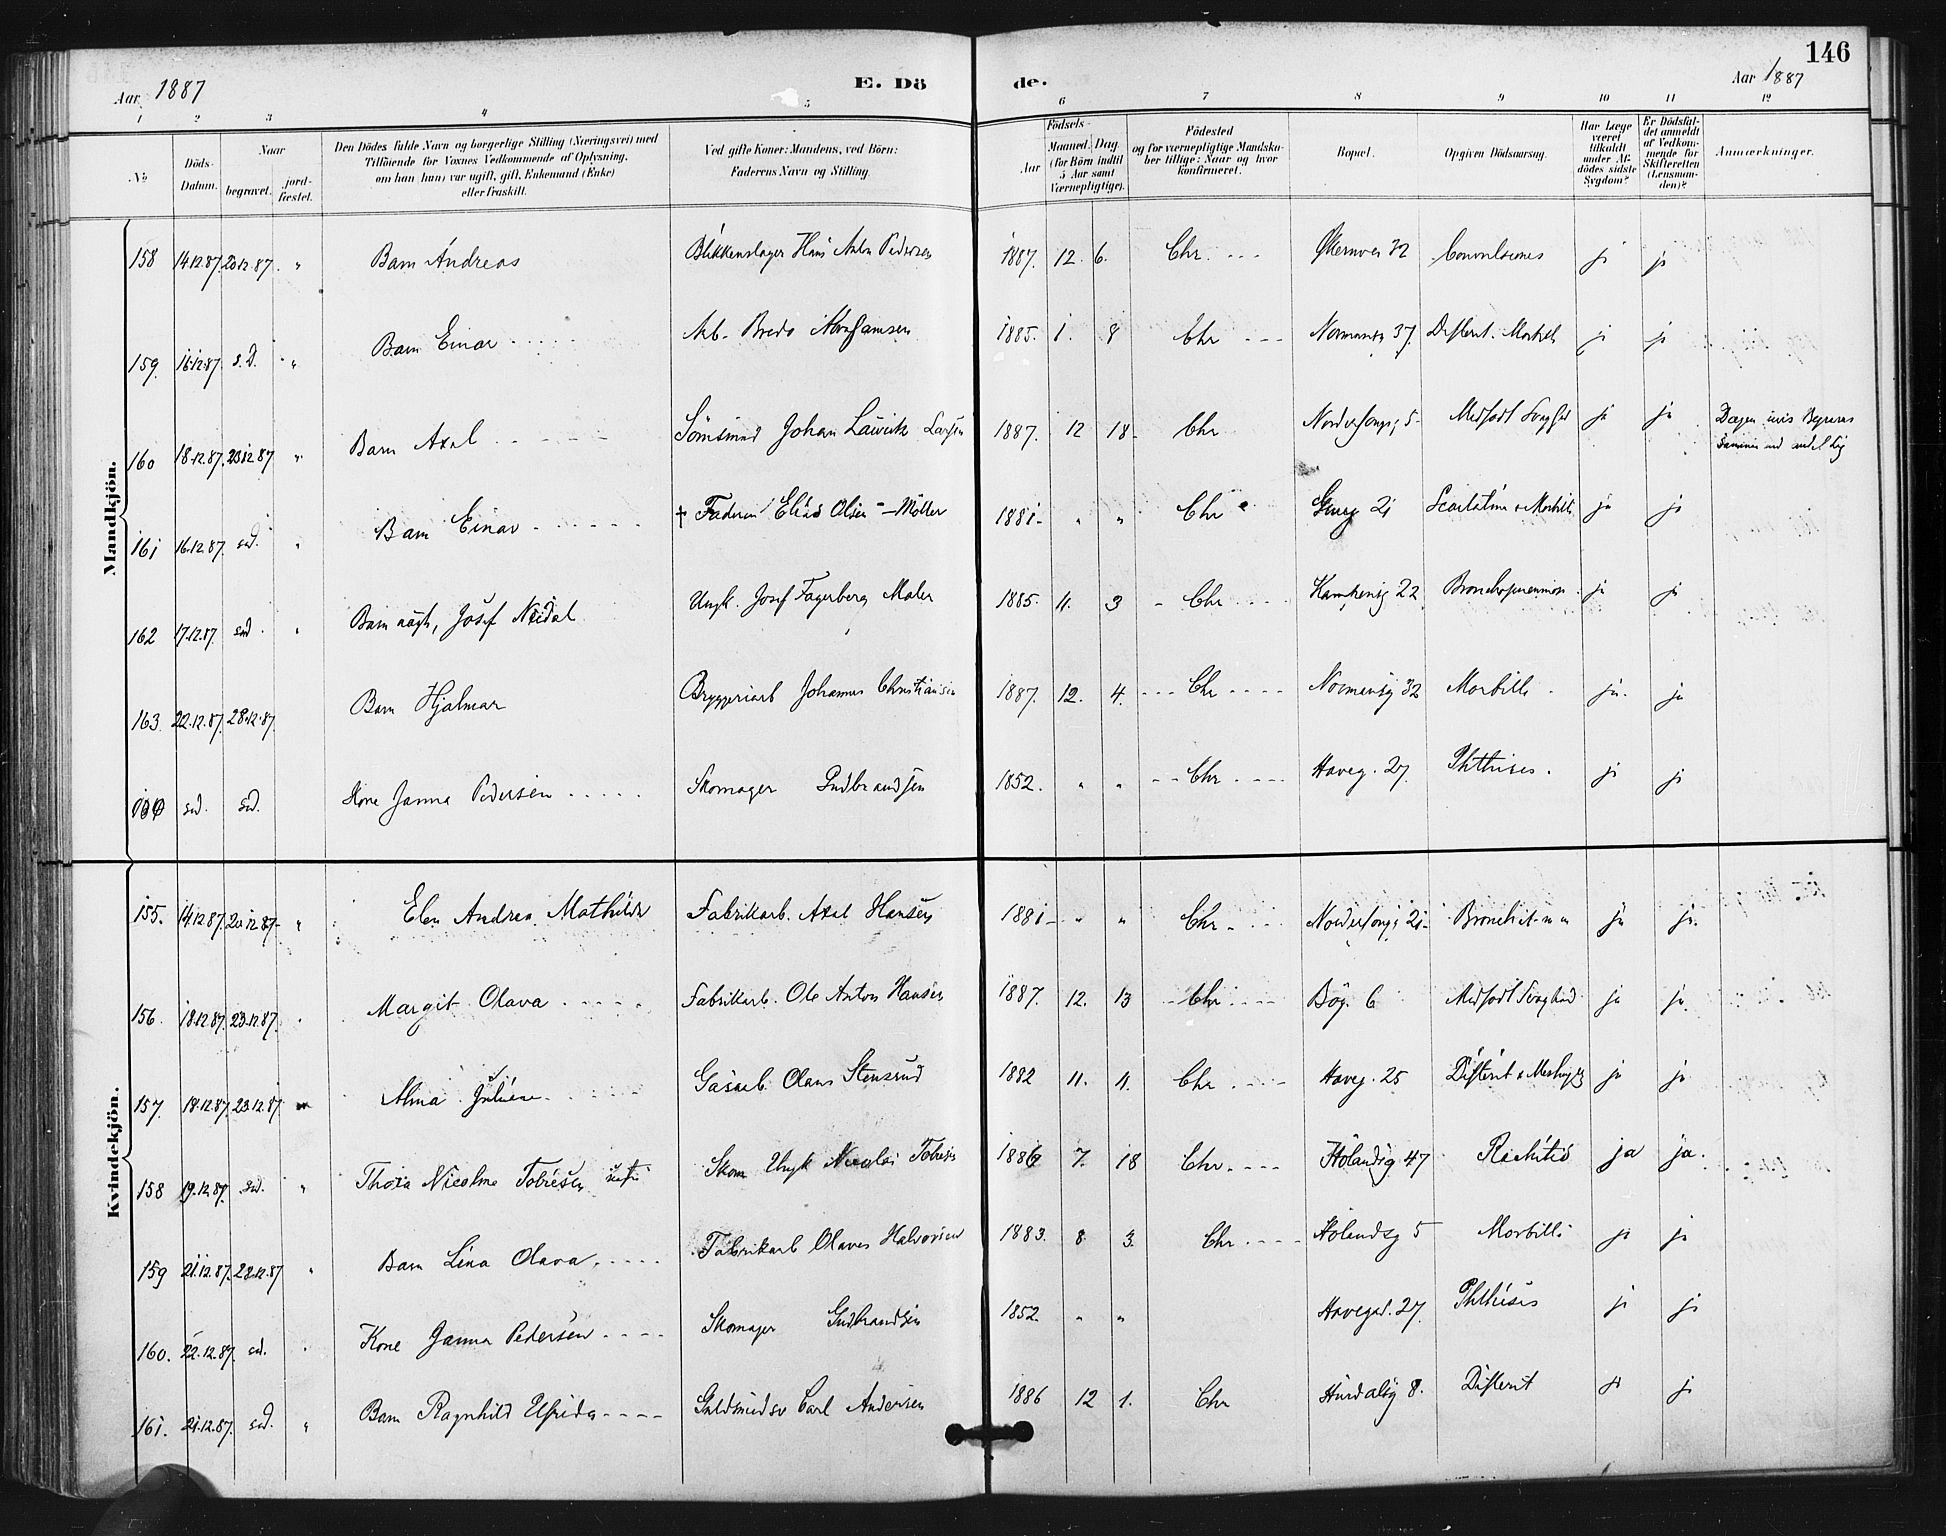 146
Aar 1887 E. Dö de. Aar 1887
1 2 3 4 5 6 7 8 9 10 11 12
No
Döds-
Datum.
Naar
begravet.
jord-
fæstet.
Den Dödes fulde Navn og borgerlige Stilling (Næringsvei) med
Tilföiende för Voxnes Vedkommende af Oplysning,
om han (hun) var ugift, gift, Enkemand (Enke)
eller fraskilt.
Ved gifte Koner: Mandens, ved Börn:
Faderens Navn og Stilling.
Födsels-
Aar
Maaned. Dag
(for Börn indtil
5 Aar samt
Værnepligtige).
Födested
og for værnepligtige Mandska-
ber tillige: Naar og hvor
konfirmeret.
Bopæl.
Opgiven Dödsaarsag.
Har Læge
været
tilkaldt
under Af-
dödes sidste
Sygdom?
Er Dödsfal-
det anmeldt
af Vedkom-
mende for
Skifteretten
(Lensman-
den)?
Anmærkninger.
Mandkjön.
158 14.12.87. 20.12.87. " Barn Andreas Blikkenslager Hans Anton Pedersen 1887. 12. 6. Chr. Økernvei 32 Convulsiones ja ja
159. 16.12.87. s.d. " Barn Einar Arb. Bredo Abrahamsen 1885. 1. 8 Chr Normannsg 37. Difterit. Morbilli ja ja
160 18.12.87. 23.12.87 " Barn Axel Johan Larsen 1887. 12 18 Chr 5 Medfødt Svaghed ja ja Dagen
161 16.12.87. sd. " Barn Einar † Faderen Elias Olsen - Möller 1881 " " Chr 21 Scarlatina & Morbilli ja ja
162 17.12.87. sd. " Barn uægt, Josef Ungk. Josef Fagerberg Maler 1885. 11. 3 Chr 22 Bronchopneumoni ja ja
163. 22.12.87. 28.12.87. Barn Hjalmar Bryggeriarb Johannes Christiansen 1887. 12. 4. Chr Normansg 32 Morbilli ja ja
sd. sd. Kone Janna Pedersen Skomager Gudbrandsen 1852. " " Chr Haveg. 27. Phthisis. ja ja
Kvindekjön.
155. 14.12.87. 20.12.87 " Elen Andrea Mathilde Fabrikarb. Axel Hansen 1881 " " Chr 21 Bronchit ja ja
156 18.12.87. 23.12.87. " Margit Olava Fabrikarb. Ole Anton Hansen 1887. 12. 13 Chr Bög. 6 Medfødt Svaghed ja ja
157. 18.12.87. 23.12.87 Alma Juliane Gasarb. Olaus Stensrud 1882 11. 11. Chr Haveg. 25 Difterit & ja ja
158 19.12.87. sd. " Thora Nicoline Tobiesen uægte Skom Ungk Nicolai Tobiesen 1886 7. 18 Chr. Hölandsg 47 Rachitis ja ja.
159 21.12.87. 28.12.87 " Barn Lina Olava Fabrikarb Olaves Halvorsen 1883. 8. 3. Chr Hölandsg 5 Morbilli ja ja
160. 22.12.87. sd. " Kone Janna Pedersen Skomager Gudbrandsen 1852. " " Havegad. 27. Phthisis ja ja
161. 21.12.87. sd. " Barn Ragnhild Elfrida Guldsmedsv Carl Andersen 1886 12 1. Chr Hurdalsg 8. Difterit ja ja